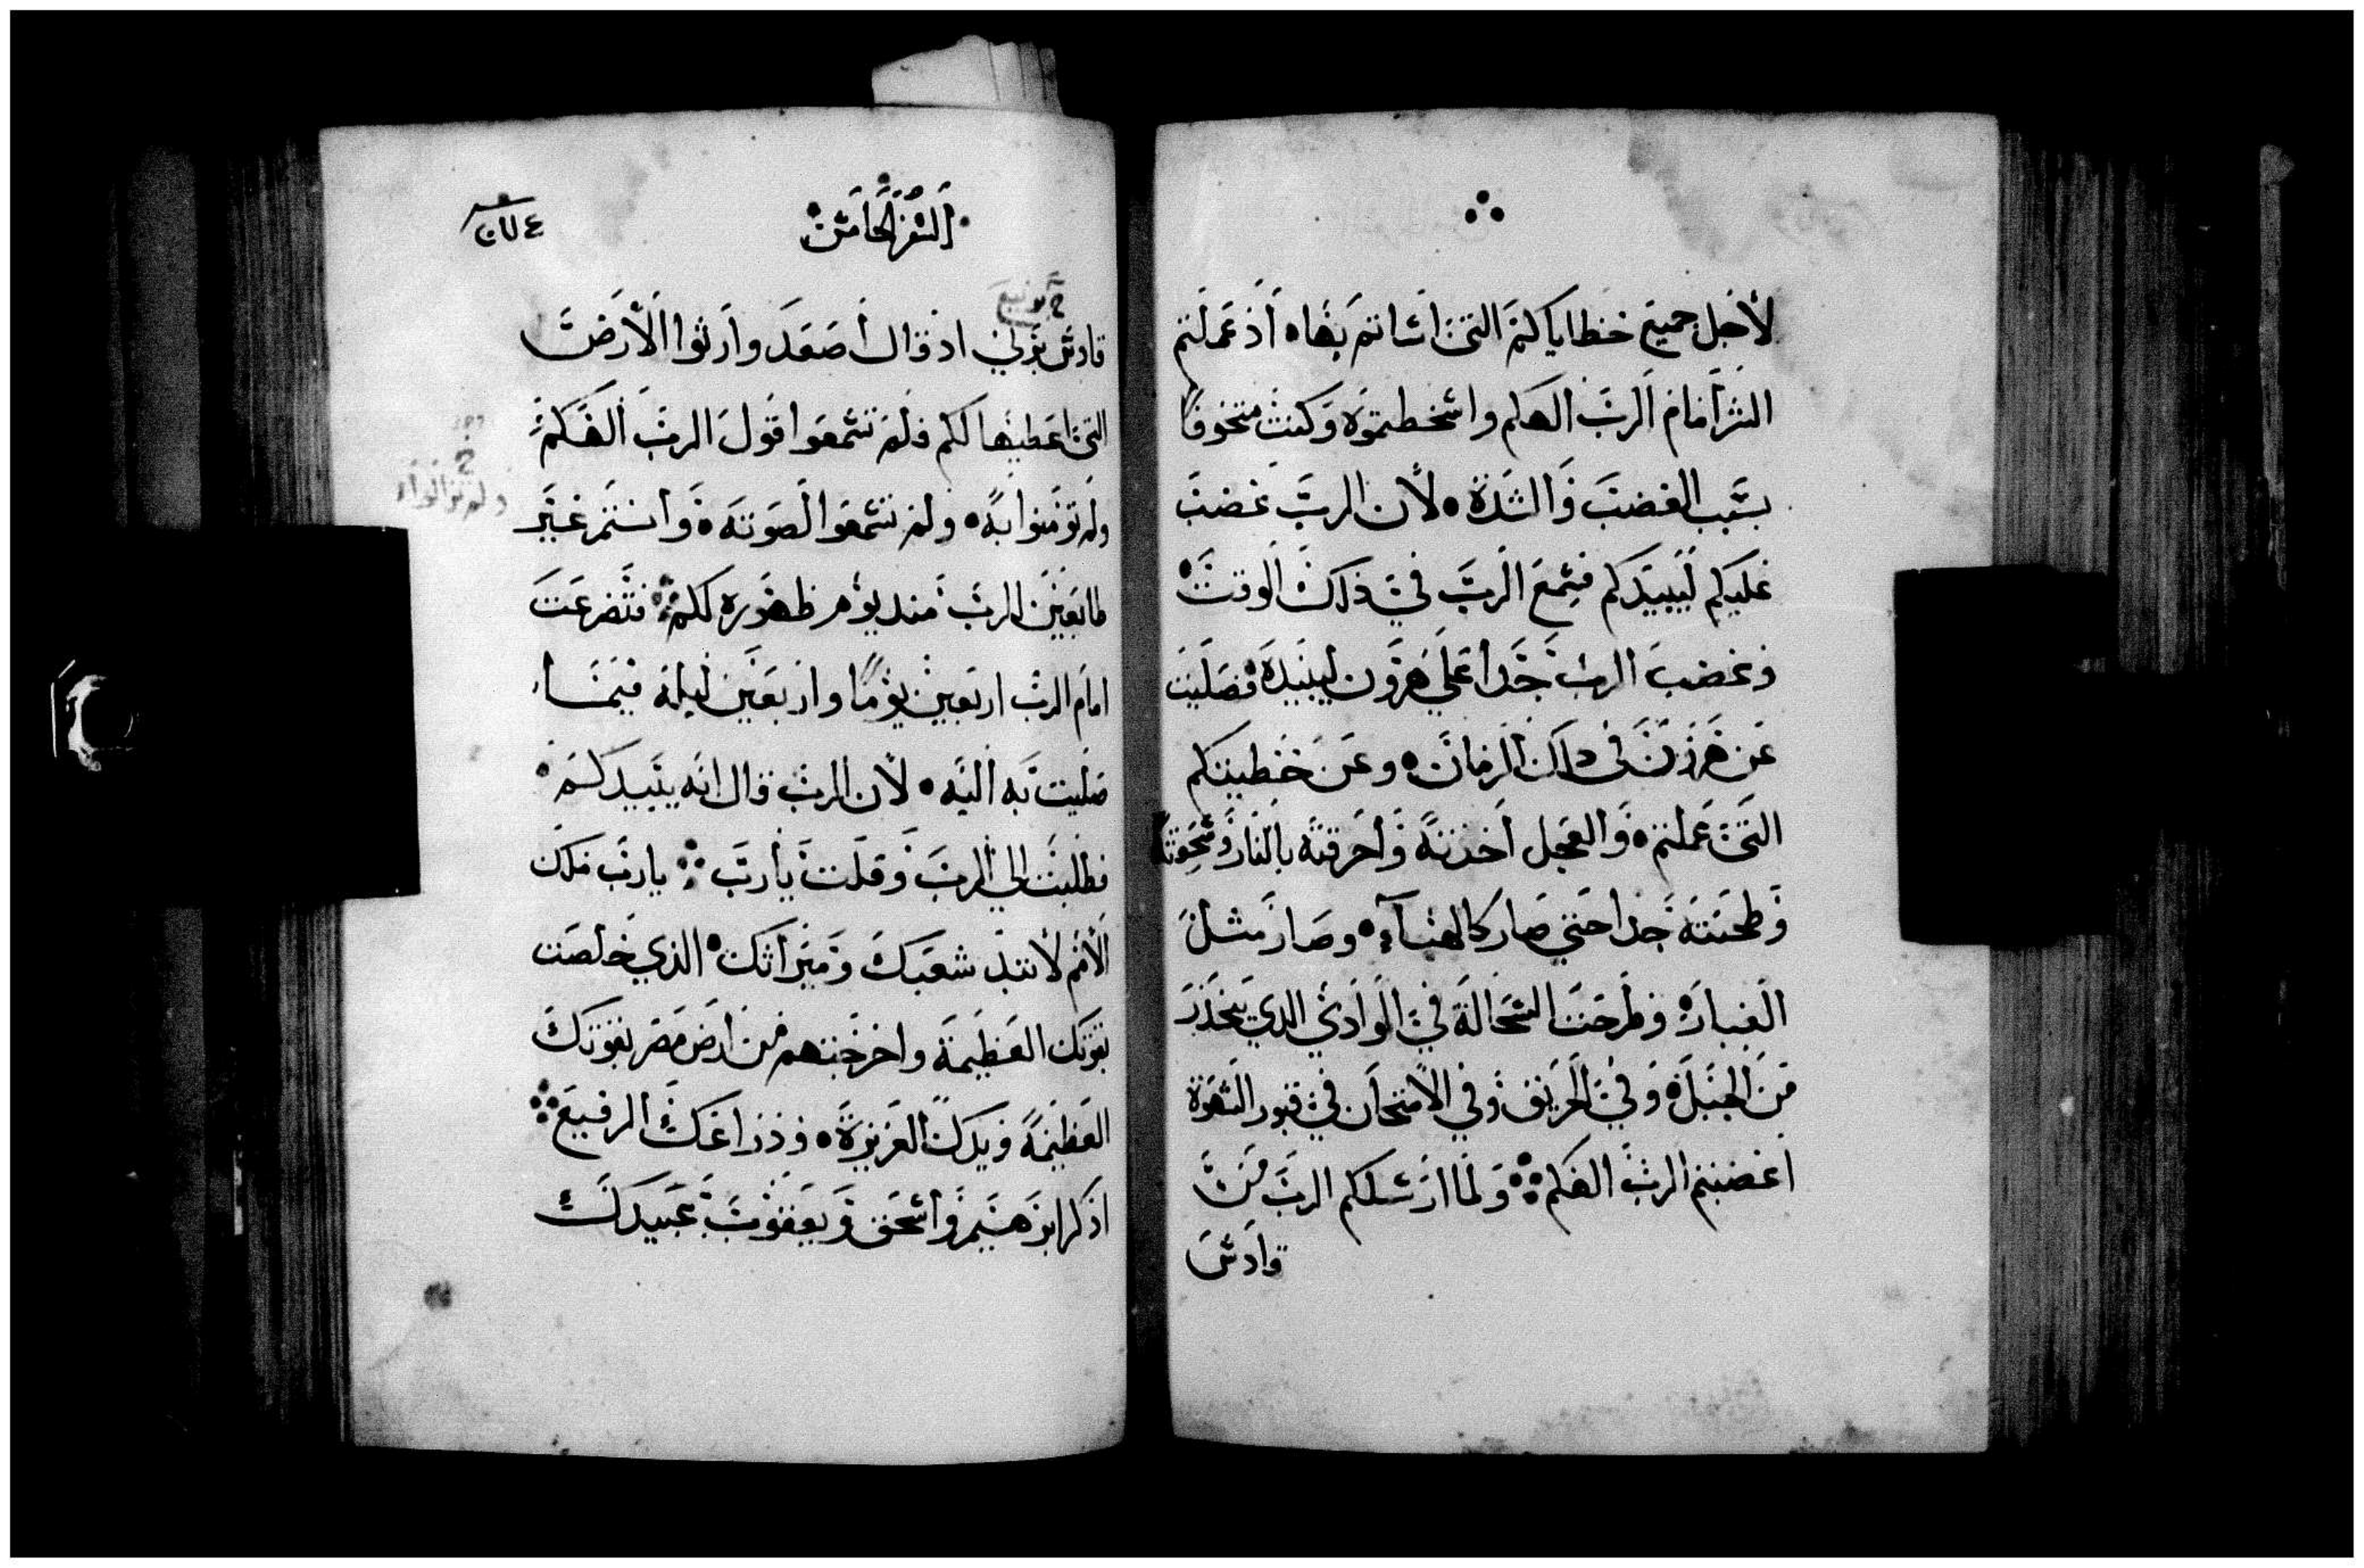 لأجل جميع خطاياكم التي اسّاتم بها ه اذ عملتم
الشر أمام الرب الهكم واسخطتموه وكنت متخوفًا
بسبب الغضب والشدة ه لأن الرب غضب
عليكم ليبيدكم فسمع الرب في ذلك الوقت ه
وغضب الرب جدا علي هرون ليبيده فصليت
عن هرون في دلك الزمان ه وعن خطيتكم
التي عملتم ه والعجل أخذته وأحرقته بالنار وسحقته
وطحنته جدا حتي صار كالهبآء ه وصار مثل
الغبار ه وطرحت السحالة في الوادي الدي ينحذر
من الجبل ه وفي الحريق وفي الامتحان في قبور الشهوة
اغضبتم الرب الهكم ܀ ولما ارسلكم الرب من
قادس
السفر الخامس
قادش برنيع اذ قال أصعد وارثوا الأرض
التي اعطيها لكم فلم تسمعوا قول الرب الهكم
ولم تؤمنوا به ه ولم تسمعوا لصوته ه وانتم غير
طايعين للرب مند يوم ظهوره لكم ܀ فتضرعت
امام الرب اربعين يومًا واربعين ليلة فيما
صليت به اليه ه لأن الرب قال انه يبيدكم ه
فطلبت الي الرب وقلت يأرب ܀ يارب ملك
الأمم لا تبد شعبك وميراثك ه الذي خلصت
بقوتك العظيمة واخرجتهم من ارض مصر بقوتك
العظيمة ويدك العزيزة ه وذراعك الرفيع ܀
اذكر ابرهيم وأسحق ويعقوب عبيدك